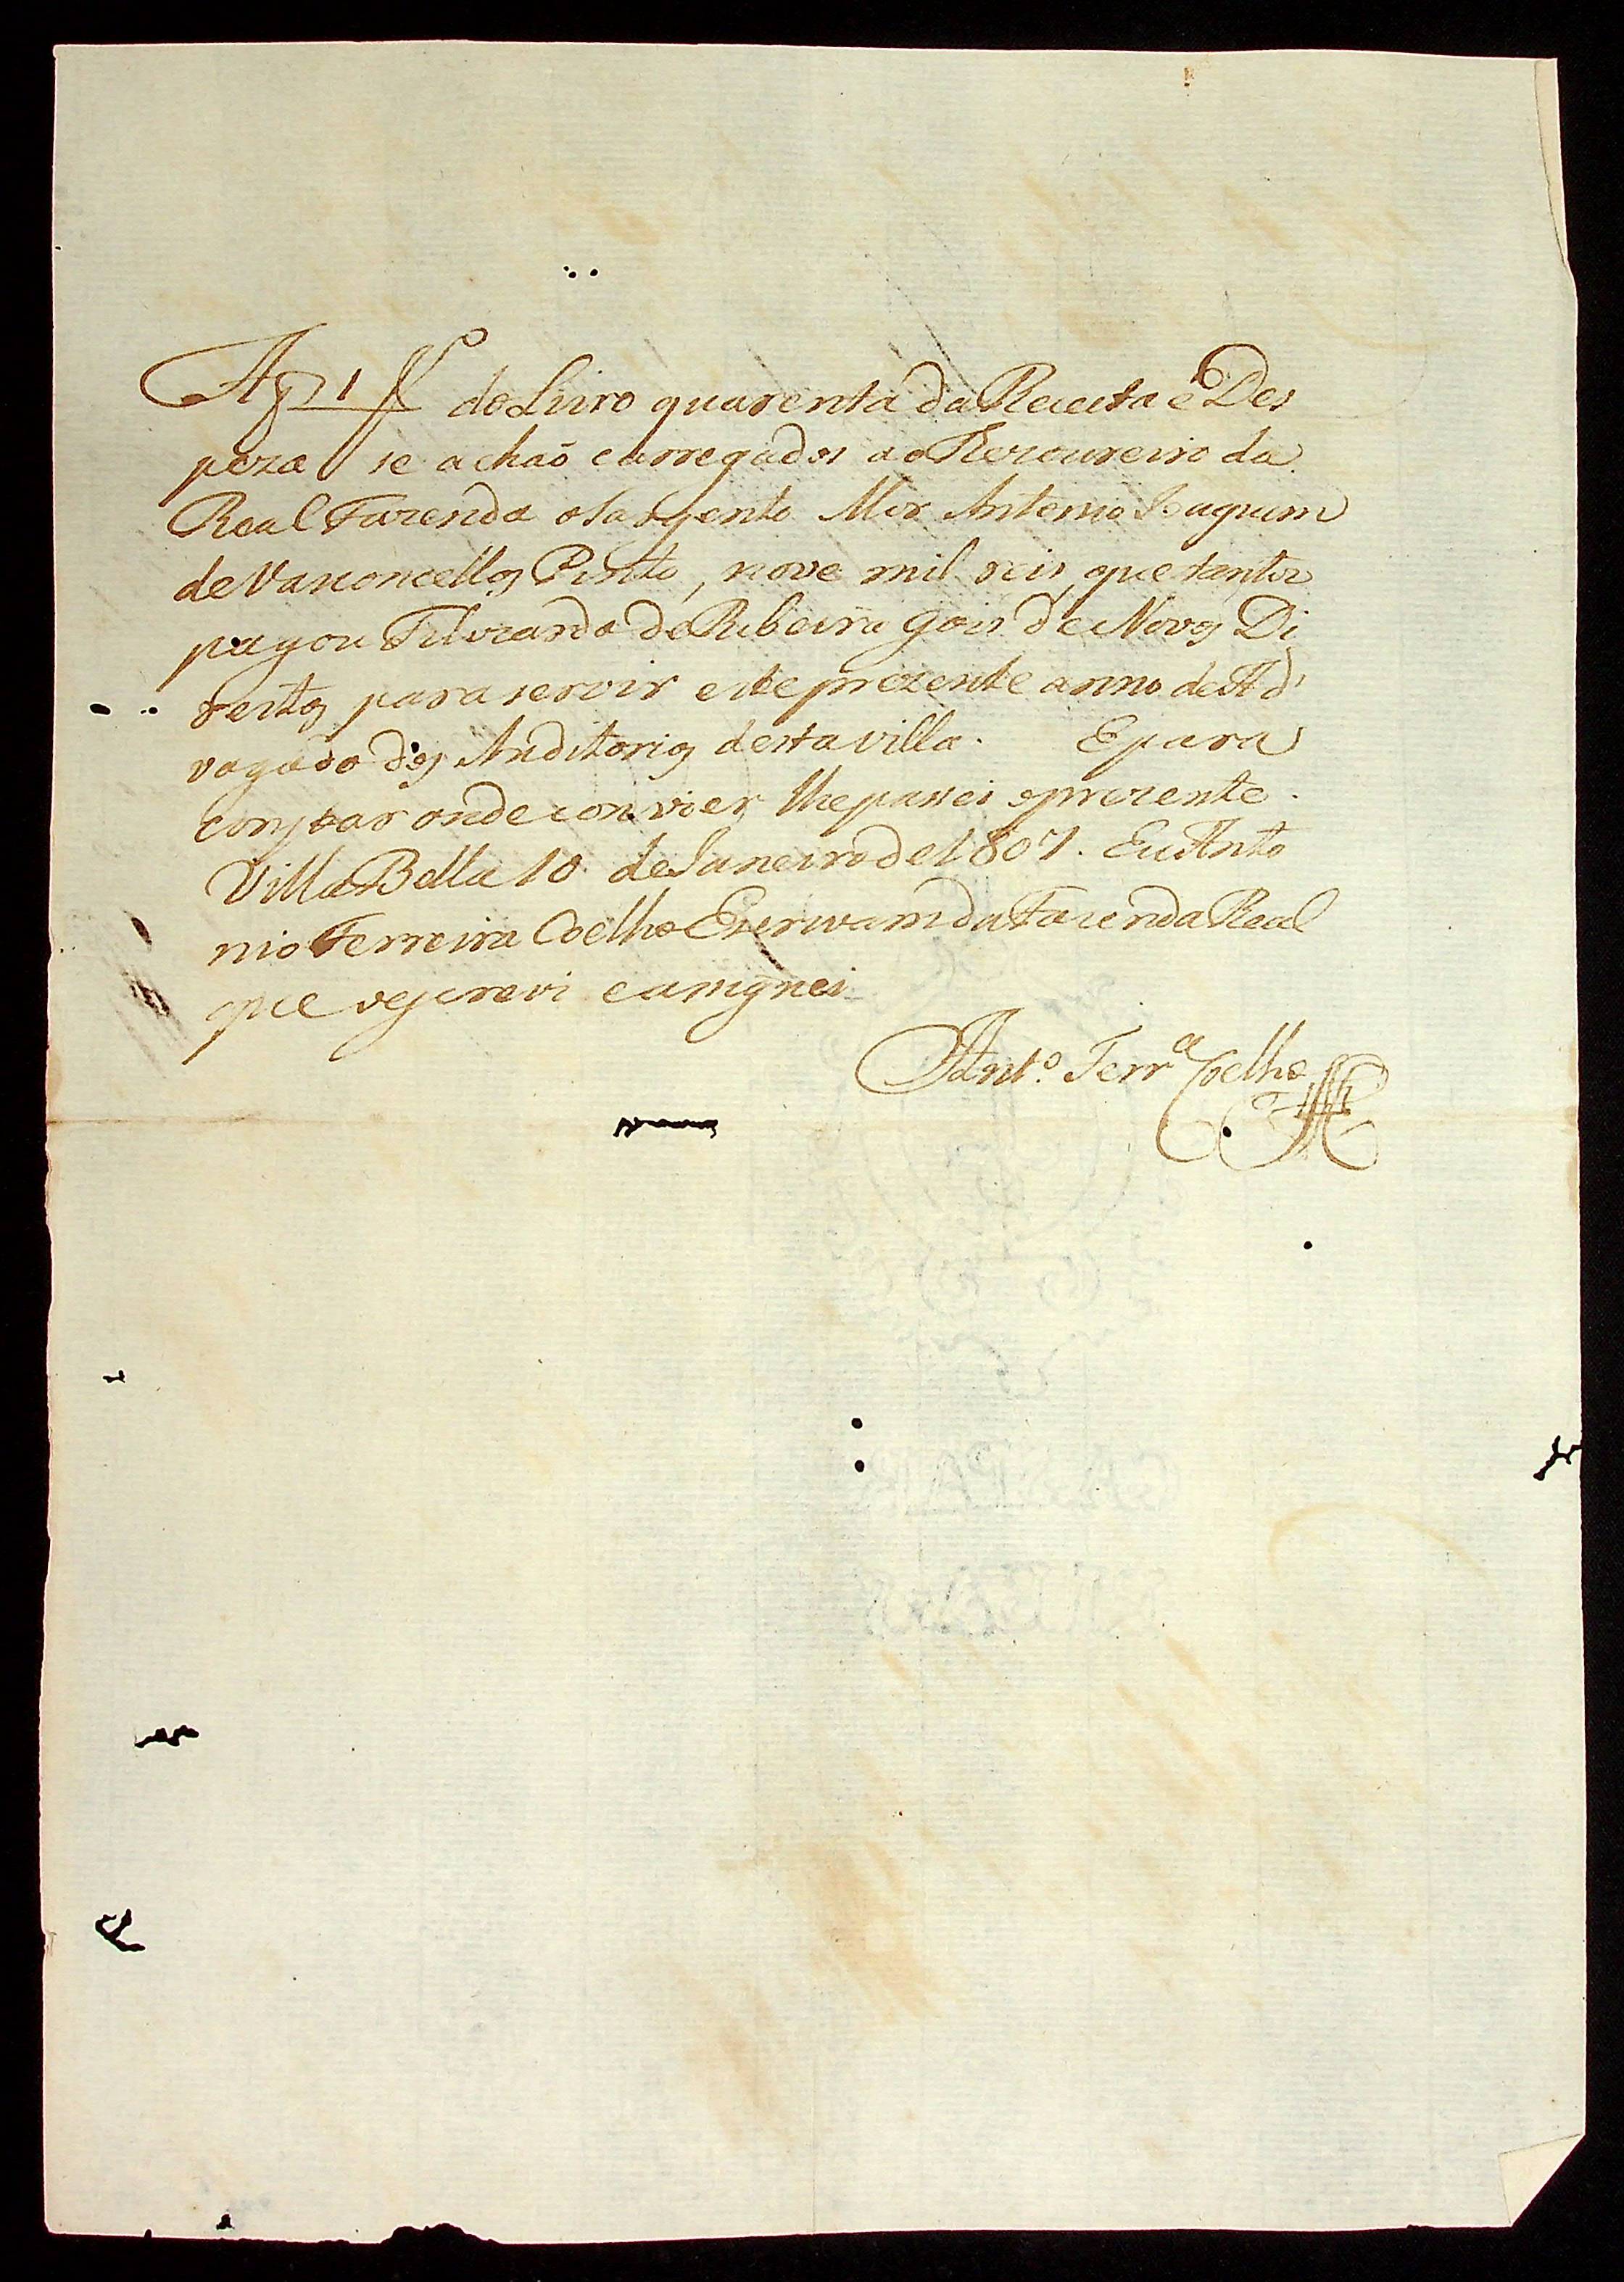 Af 1 f do Livro quarenta da Receita e Des
peza se achaõ carregados ao Thezoureiro da
Real Fazenda o Sargento Mor Antonio Joaquim
de Vasconcellos Pinto, nove mil reis, que tantos
pagou de Ribeira Gois de Novos Di
reitos para servir este prezente anno de Ad
vogado dos Auditorios desta villa. E para
constar onde convier, lhe passei o prezente.
Villa Bella 10 de Janeiro de 1807. Eu Anto
nio Ferreira Coelho Escrivam da Fazenda Real
que o escrevi e assignei
Ant.º Ferrª Coelho